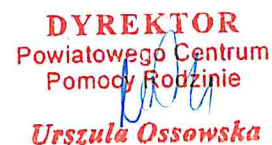 DYREKTOR
Powiatowego Centrum
Pomocy Rodzinie
Urszula Ossowska